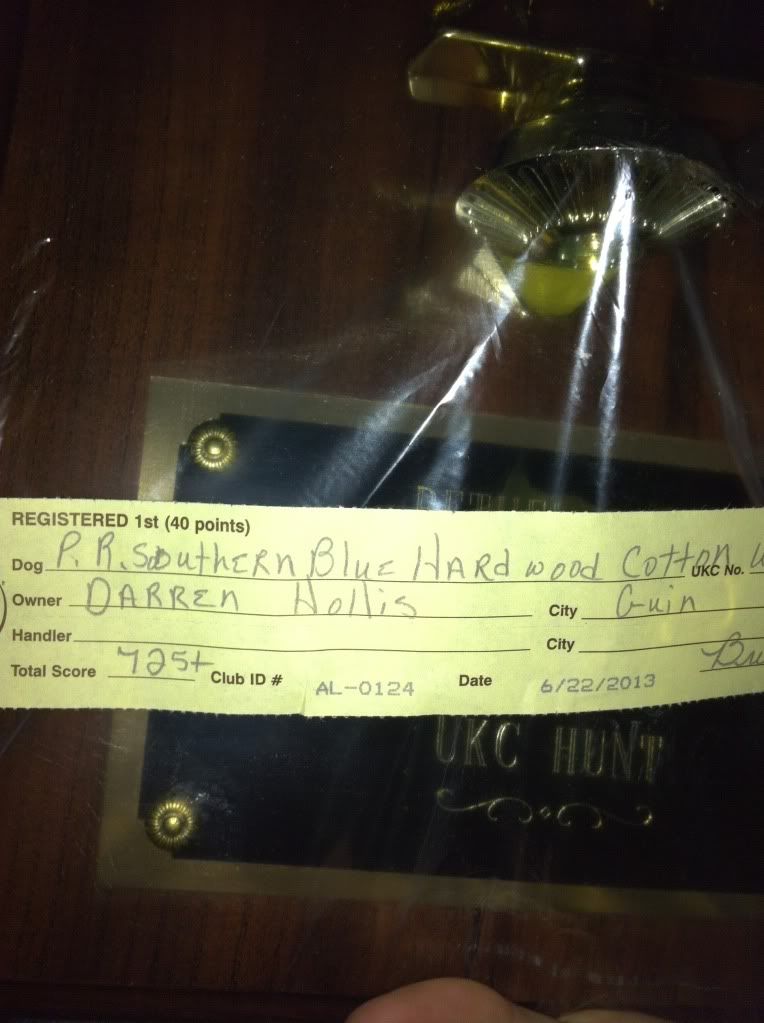 REGISTERED 1st (40 points)
Dog P.R. Southern Blue Hardwood Cotton UKC No.
Owner DARREN Hollis City Guin
Handler City
Total Score 725+ Club ID # AL-0124 Date 6/22/2013
UKC HUNT